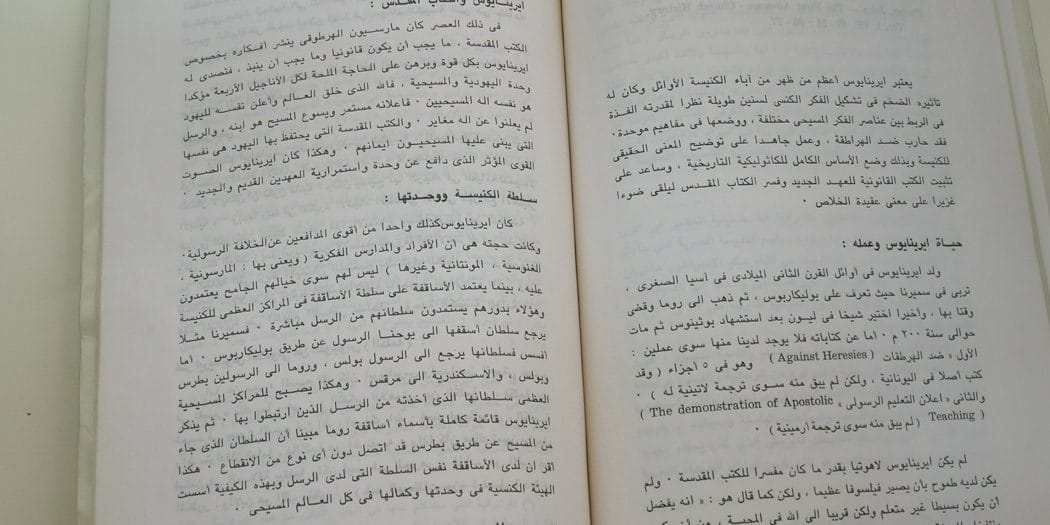 يعتبر ايرينايوس أعظم من ظهر من آباء الكنيسة الأوائل وكان له
تاثيره الضخم فى تشكيل الفكر الكنسى لسنين طويلة نظرا لمقدرته الفذة
فى الربط بين عناصر الفكر المسيحى مختلفة ، ووضعها فى مفاهيم موحدة٠
فقد حارب ضد الهراطقة ، وعمل جاهدا على توضيح المعنى الحقيقى
للكنيسة وبذلك وضع الأساس الكامل للكاثوليكية التاريخية ، وساعد على
تثبيت الكتب القانونية للعهد الجديد وفسر الكتاب المقدس ليلقى ضوءا
غزيرا على معنى عقيدة الخلاص ٠
حياة ايرينايوس وعمله :
ولد ايرينايوس فى أوائل القرن الثانى الميلادى فى آسيا الصغرى ،
تربى فى سميرنا حيث تعرف على بوليكاربوس ، ثم ذهب الى روما وقضى
وقتا بها ، واخيرا اختير شيخا فى ليون بعد استشهاد بوثينوس ثم مات
حوالى سنة ٢٠٠ م ٠ اما عن كتاباته فلا يوجد لدينا منها سوى عملين :
الأول « ضد الهرطقات ( Against Heresies ) وهو فى ٥ أجزاء ( وقد
كتب أصلا فى اليونانية ، ولكن لم يبق منه سوى ترجمة لاتينية له ) ٠
والثانى « اعلان التعليم الرسولى » The demonstration of Apostolic )
( Teaching ( لم يبق منه سوى ترجمة أرمينية ) ٠
لم يكن ايرينايوس لاهوتيا بقدر ما كان مفسرا للكتب المقدسة ٠ ولم
يكن لديه طموح بأن يصير فيلسوفا عظيما ، ولكن كما قال هو : « انه يفضل
أن يكون بسيطا غير متعلم ولكن قريبا الى الله فى المحبة ، من أن
ايرينايوس والكتاب المقدس :
فى ذلك العصر كان مارسيون الهرطوقى ينشر أفكاره بخصوص
الكتب المقدسة ، ما يجب أن يكون قانونيا وما يجب أن ينبذ ، فتصدى له
ايرينايوس بكل قوة وبرهن على الحاجة الملحة لكل الأناجيل الأربعة مؤكدا
وحدة اليهودية والمسيحية ، فالله الذى خلق العالم وأعلن نفسه لليهود
هو نفسه اله المسيحيين ٠ فاعلانه مستمر ويسوع المسيح هو ابنه ، والرسل
لم يعلنوا عن اله مغاير ٠ والكتب المقدسة التى يحتفظ بها اليهود هى نفسها
التى يبنى عليها المسيحيون ايمانهم ٠ وهكذا كان ايرينايوس الصوت
القوى المؤثر الذى دافع عن وحدة واستمرارية العهدين القديم والجديد ٠
سلطة الكنيسة ووحدتها :
كان ايرينايوس كذلك واحدا من أقوى المدافعين عن الخلافة الرسولية٠
وكانت حجته هى أن الأفراد والمدارس الفكرية ( ويعنى بها : المارسونية ،
الغنوسية ، المونتانية وغيرها ) ليس لهم سوى خيالهم الجامح يعتمدون
عليه ، بينما يعتمد الأساقفة على سلطة الأساقفة فى المراكز العظمى للكنيسة
وهؤلاء بدورهم يستمدون سلطانهم من الرسل مباشرة ٠ فسميرنا مثلا
يرجع سلطان أسقفها الى يوحنا الرسول عن طريق بوليكاربوس ٠ أما
أفسس فسلطانها يرجع الى الرسول بولس ، وروما الى الرسولين بطرس
وبولس ، والاسكندرية الى مرقس ٠ وهكذا يصبح للمراكز المسيحية
العظمى سلطانها الذى أخذته من الرسل الذين ارتبطوا بها ٠ ثم يذكر
ايرينايوس قائمة كاملة بأسماء أساقفة روما مبينا أن السلطان الذى جاء
من المسيح عن طريق بطرس قد اتصل دون أى نوع من الانقطاع ٠ هكذا
اقر ان لدى الأساقفة نفس السلطة التى لدى الرسل وبهذه الكيفية أسست
الهيئة الكنسية فى وحدتها وكمالها فى كل العالم المسيحى ٠